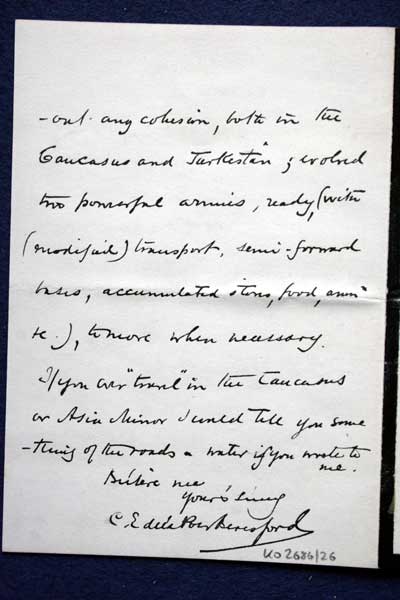 -out any cohesion, both in the
Caucasus and Turkestan; evolved
two powerful armies, ready, (with
(modified) transport, semi-forward
bases, accumulated stores, food, amn
&c.), to move when necessary.
If you ever "travel" in the Caucasus
or Asia Minor I could tell you some
-thing of the roads & water if you wrote to
me.
Believe me
Yours
C. E de la Poer Beresford
KO2686/26